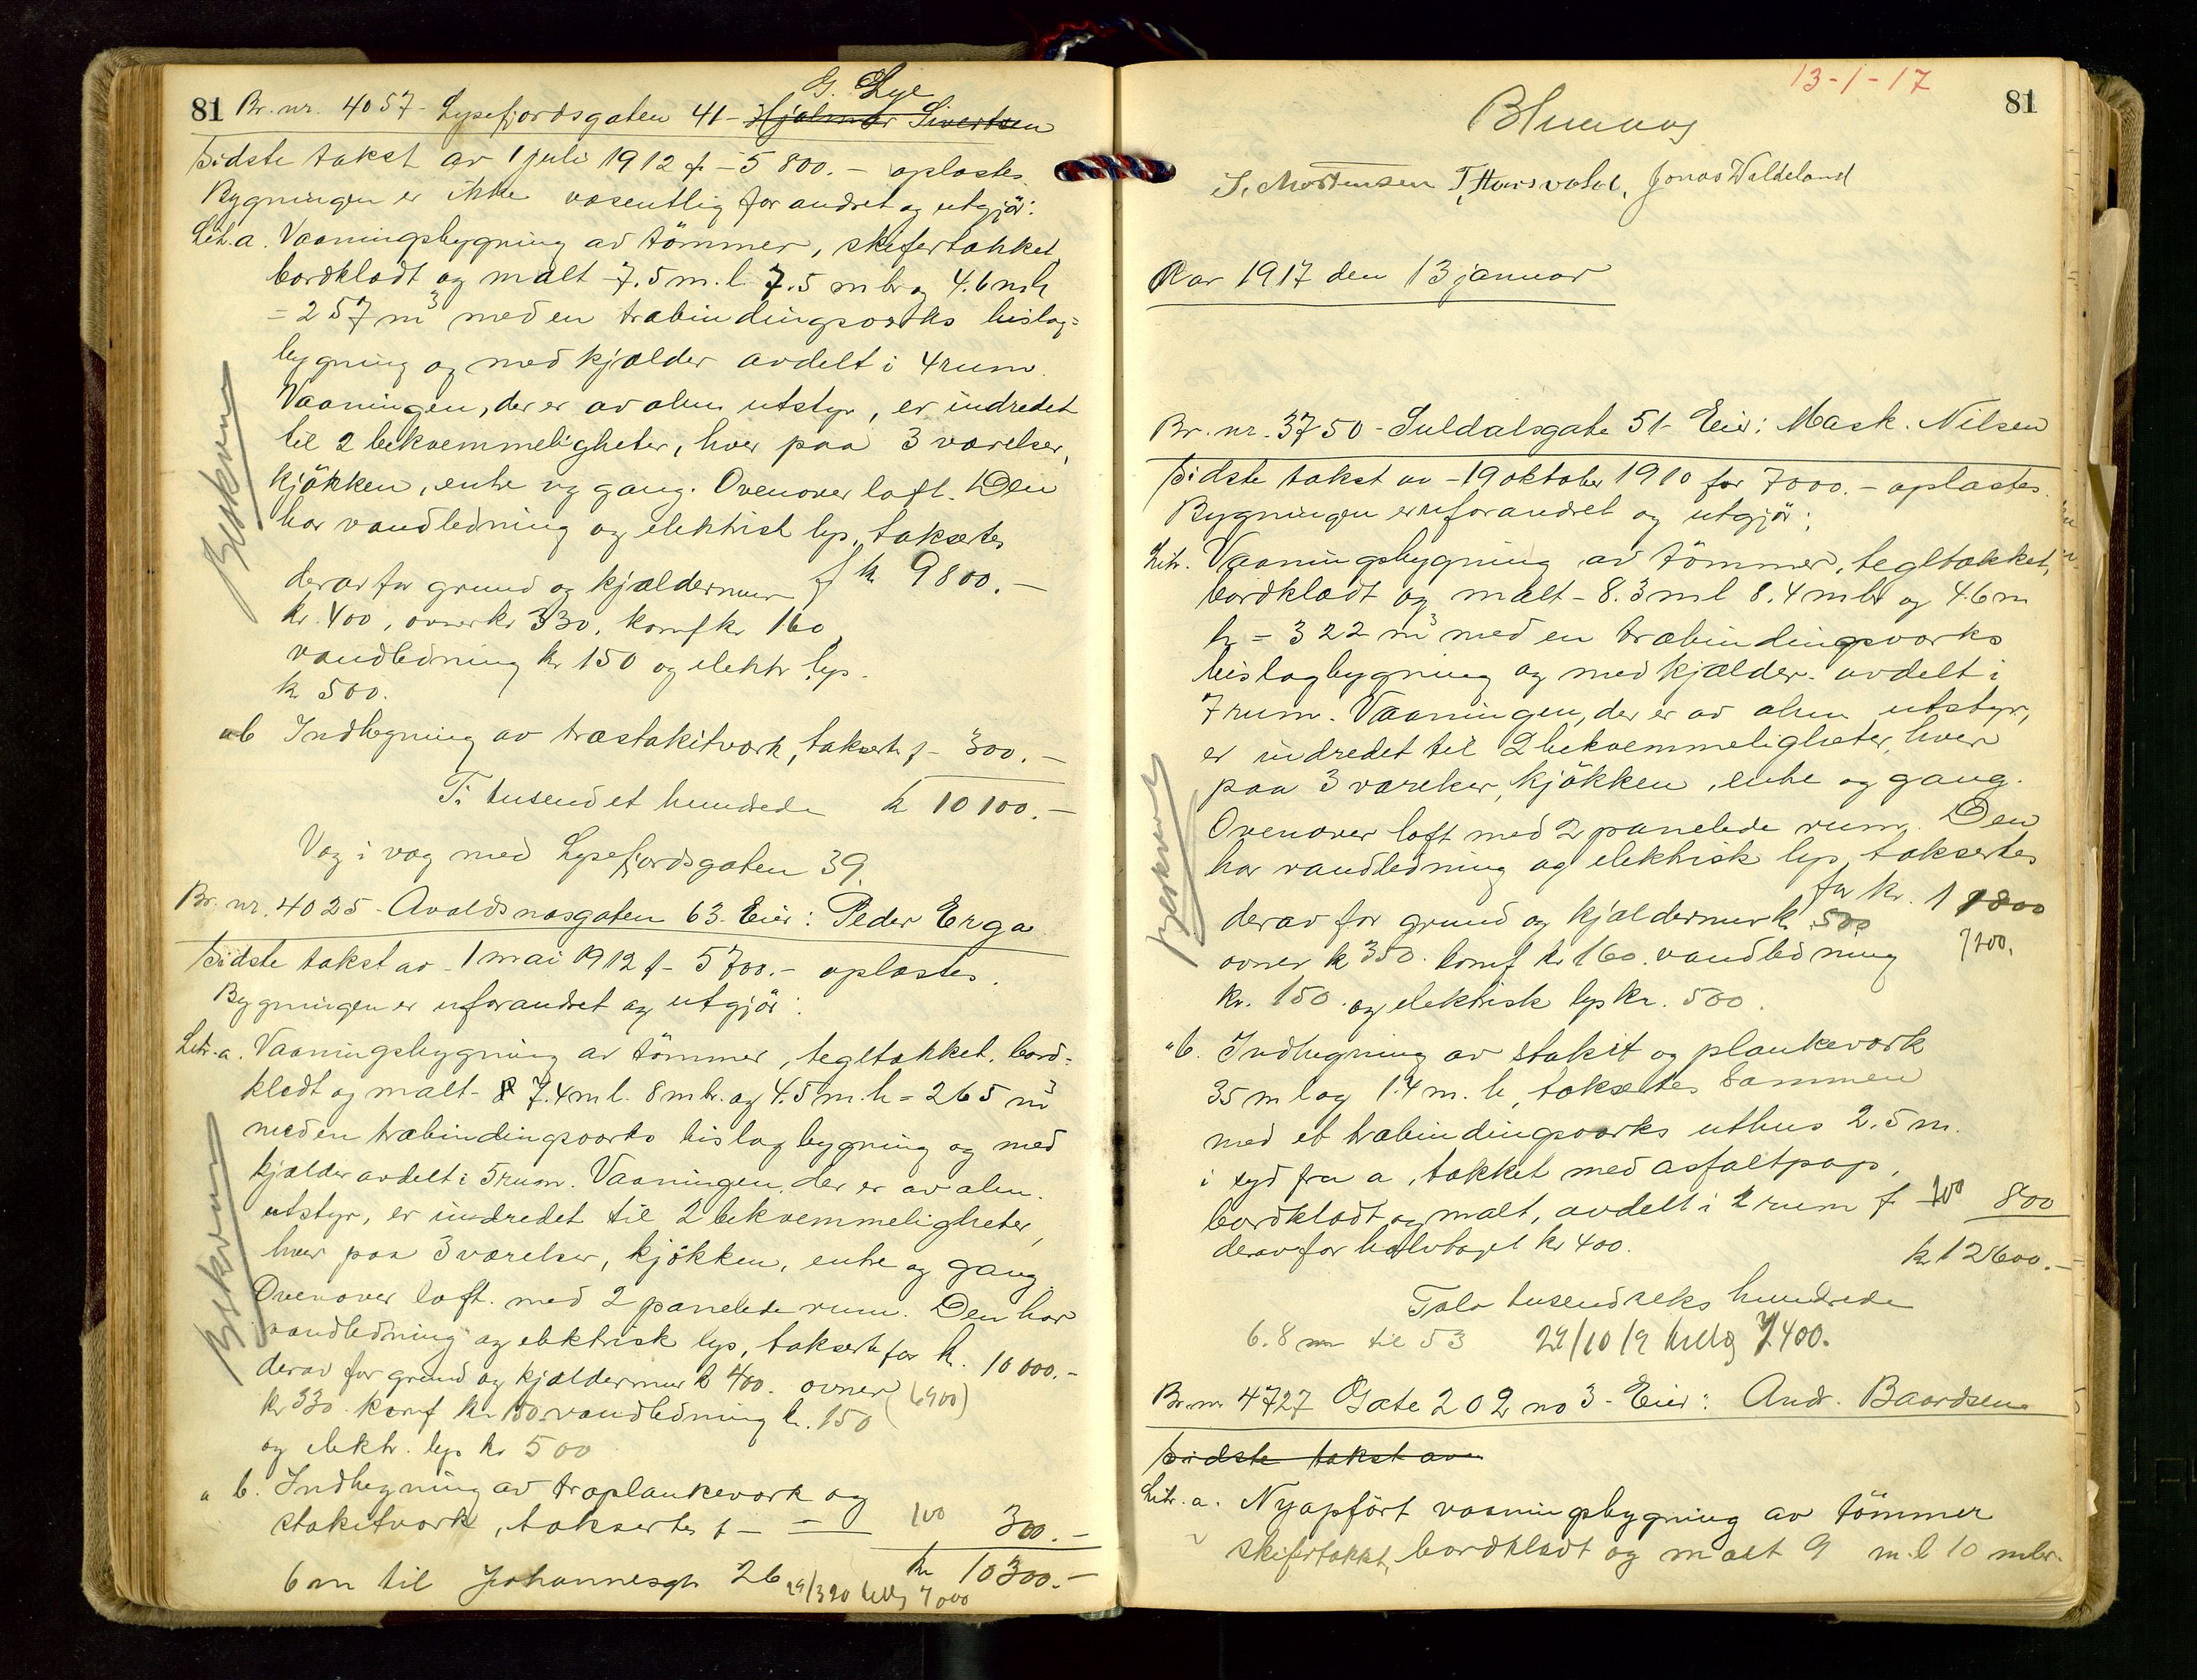 81 Br. nr. 4057 - Lysefjordsgaten 41 - Hjalmar Sivertsen
G. Lye
Sidste takst av 1 juli 1912 f - 5 800. - oplæstes.
Bygningen er ikke væsentlig forandret og utgjör:
Litr. a. Vaaningsbygning av tömmer, skifertækket,
bordklædt og malt - 7.5 m. l. 7.5 m br og 4.6 m h
= 257 m³ med en træbindingsverks bislag-
bygning og med kjælder avdelt i 4 rum.
Vaaningen, der er av alm utstyr, er indredet
til 2 bekvemmeligheter, hver paa 3 værelser,
kjökken, entre og gang. Ovenover loft. Den
har vandledning og elektrisk lys, taksertes
f kr 9800.-
derav for grund og kjældermur
kr. 400, ovner kr 330, komf kr 160,
vandledning kr 150 og elektr lys.
kr 500.
" b Indhegning av træstakitverk, taksertes f - 300. -
Ti tusend et hundrede kr 10 100. -
Væg i væg med Lysefjordsgaten 39.
Beskrevet
Br. nr. 4025 - Avaldsnæsgaten 63. Eier: Peder Erga
Sidste takst av - 1 mai 1912 f - 5 700. - oplæstes.
Bygningen er uforandret og utgjör:
Litr. a. Vaaningsbygning av tömmer, tegltækket, bord-
klædt og malt - 7.4 m l. 8 m br. og 4.5 m. h = 265 m³
med en træbindingsverks bislagbygning og med
kjælder avdelt i 5 rum. Vaaningen, der er av alm.
utstyr, er indredet til 2 bekvemmeligheter,
hver paa 3 værelser, kjökken, entre og gang.
Ovenover loft med 2 panelede rum. Den har
vandledning og elektrisk lys, taksertes for kr. 10 000. -
derav for grund og kjældermur kr 400. ovner (6900)
kr 330 komf kr 150 vandledning kr. 150
og elektr. lys kr 500
" b. Indhegning av træplankeverk og
stakitverk, taksertes f - - 100 300. -
kr 10 300. -
6 m til Johannesgt 26 29/3 20 7000
Beskrevet
13-1-17
81
S. Mortensen T. Thorsvold, Jonas Waldeland
Aar 1917 den 13 januar
Br. nr. 3750 - Suldalsgate 51 - Eier: Mask. Nilsen
Sidste takst av - 19 oktober 1910 for 7000. - oplæstes.
Bygningen er uforandret og utgjör:
Litr. Vaaningsbygning av tömmer, tegltækket,
bordklædt og malt - 8.3 m l 8.4 m br og 4.6 m
h = 322 m³ med en træbindingsverks
bislagbygning og med kjælder avdelt i
7 rum. Vaaningen, der er av alm utstyr,
er indredet til 2 bekvemmeligheter, hver
paa 3 værelser, kjökken, entre og gang.
Ovenover loft med 2 panelede rum. Den
har vandledning og elektrisk lys, taksertes
for kr. 11800
derav for grund og kjældermur kr 500
ovner kr 350. komf kr 160. vandledning 7200.
kr. 150. og elektrisk lys kr. 500.
" b. Indhegning av stakit og plankeverk
35 m l og 1.4 m. h, taksertes sammen
med et træbindingsverks uthus 2.5 m.
i syd fra a, tækket med asfaltpap,
bordklædt og malt, avdelt i 2 rum f 800
derav for halvtaget kr 400.
kr 12600. -
Tolv tusend seks hundrede
6.8 m til 53 29/10 19 7400.
Beskrevet
Br. nr 4727 Gate 202 no 3 - Eier: Andr. Baardsen
Sidste takst av
Litr. a. Nyopfört vaaningsbygning av tömmer
skifertækket, bordklædt og malt 9 m. l 10 m br.